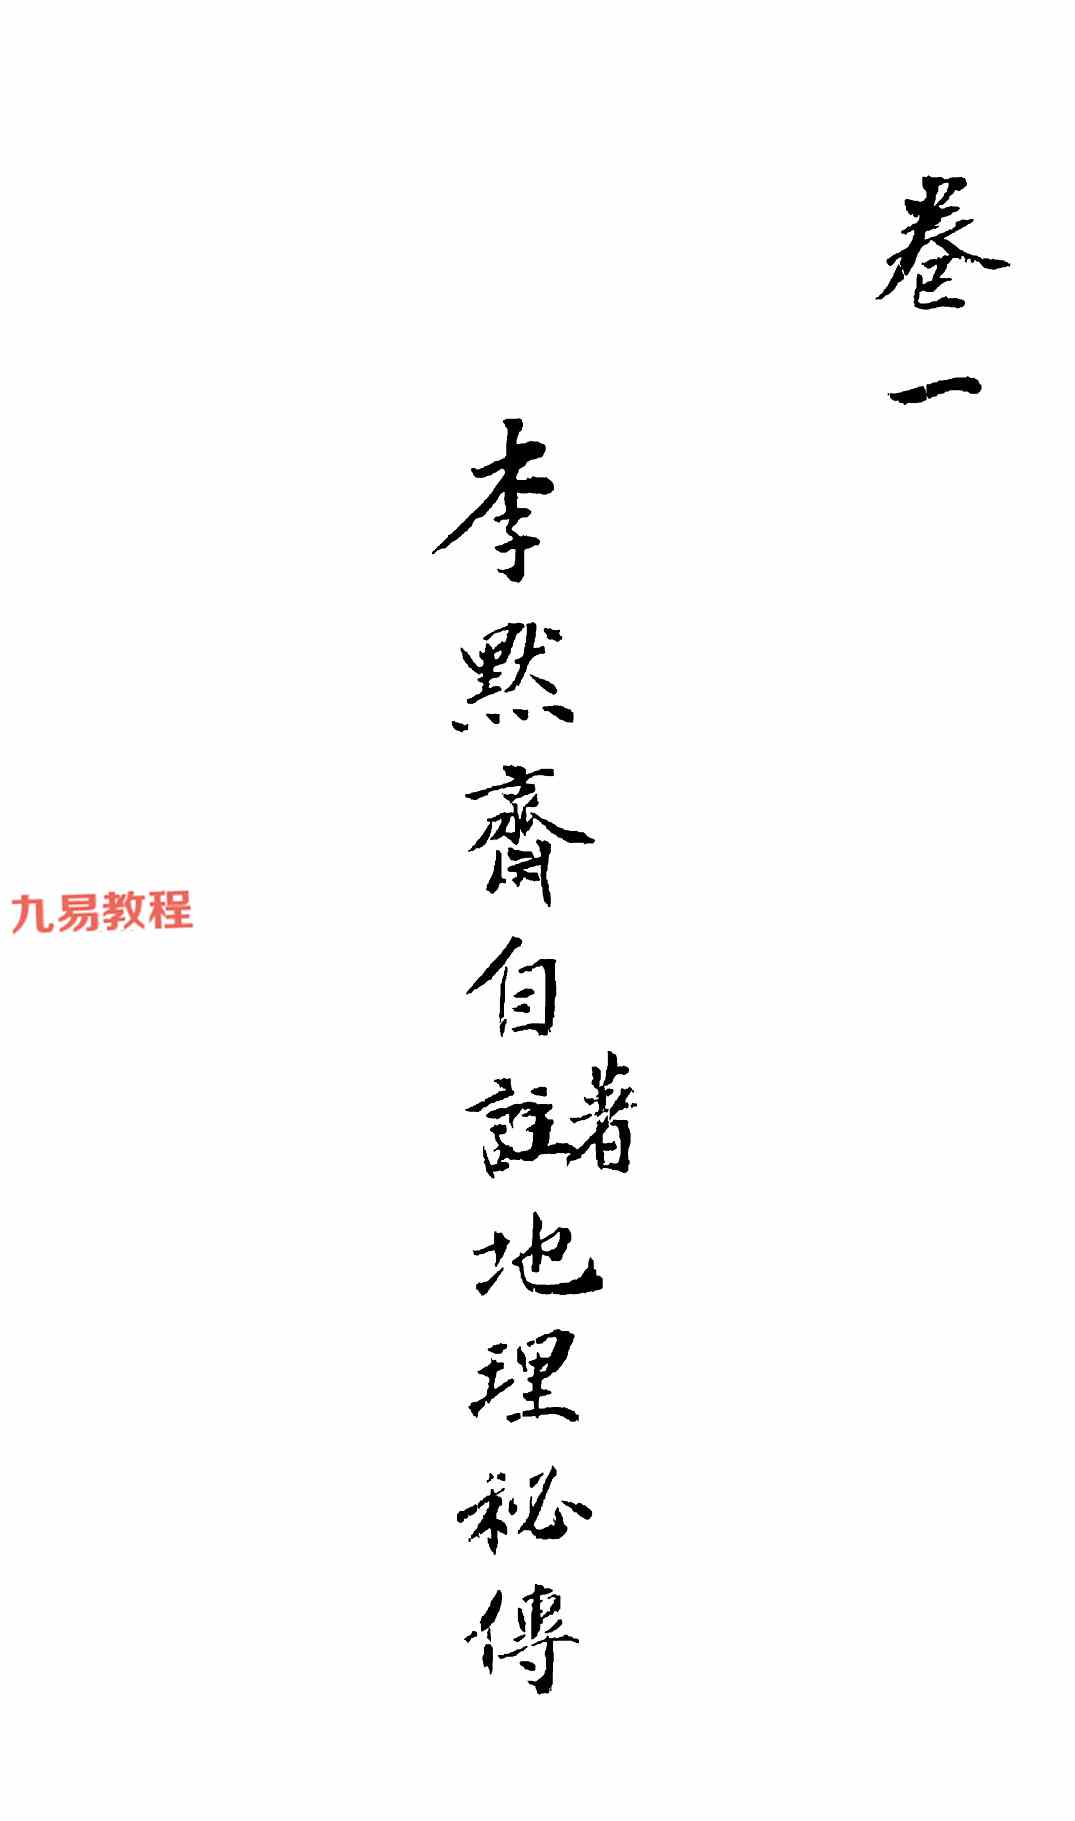 卷一
李默齋自註著地理秘傳
九易教程